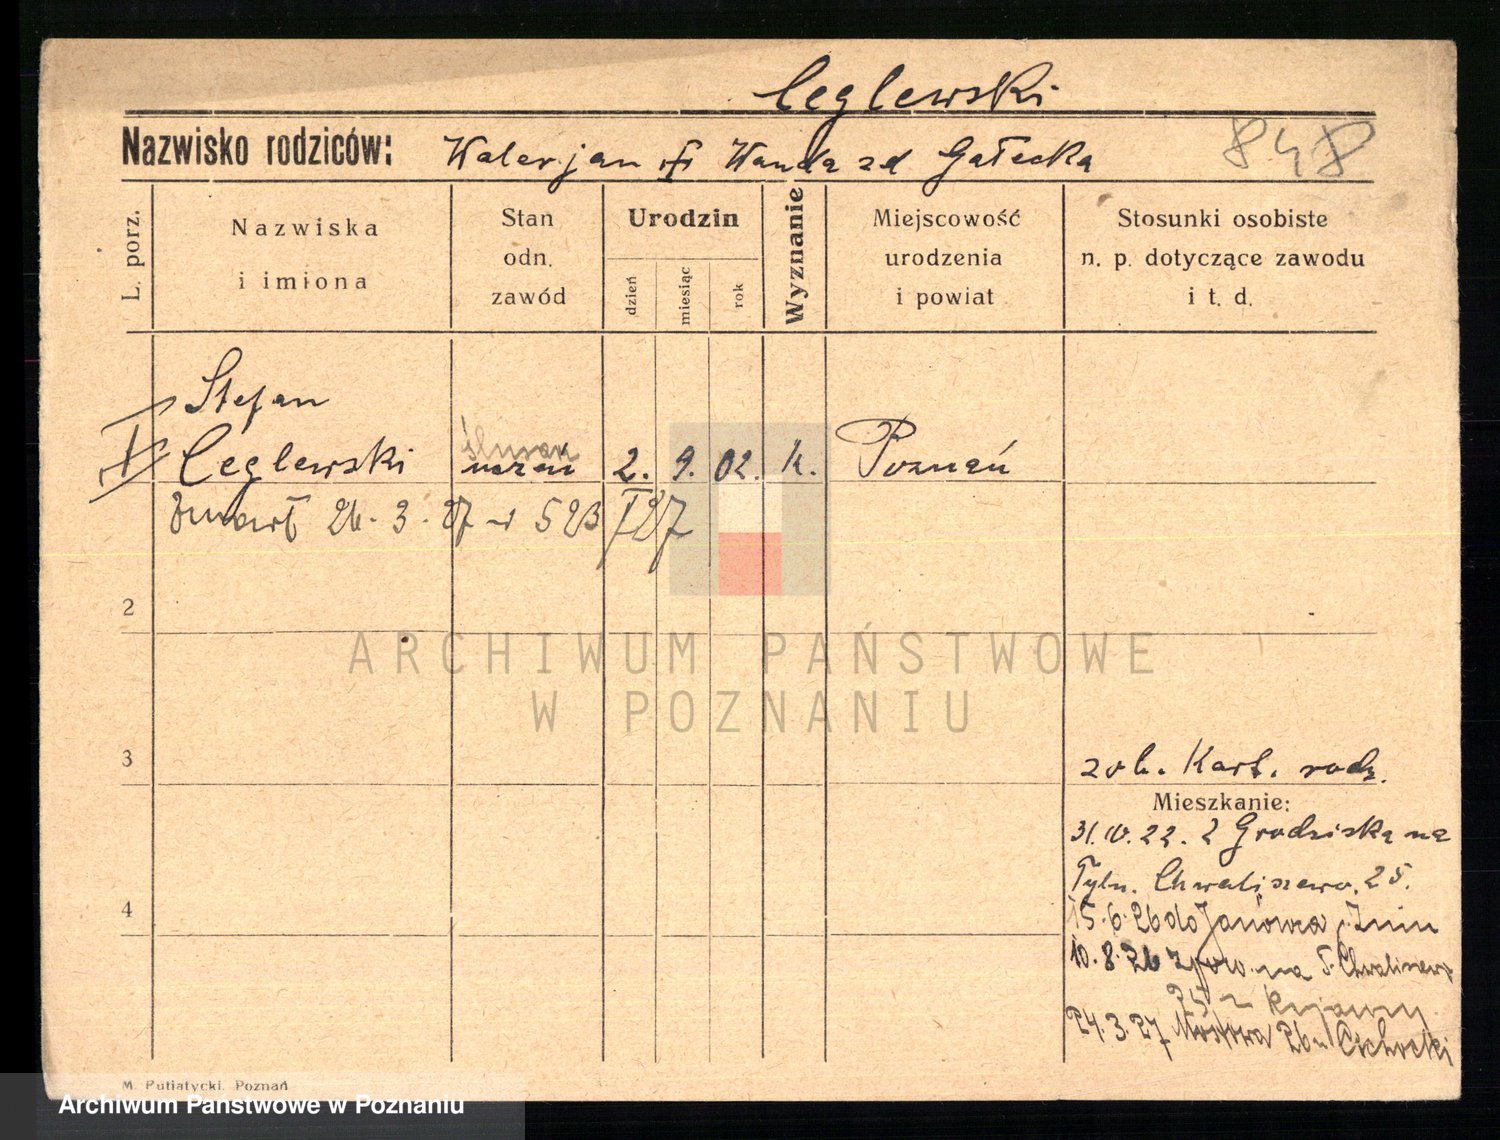 Ceglewski
Nazwisko rodziców: Walerjan i Wanda zd Gałecka
848
L. porz.
Nazwiska
i imiona
Stan
odn.
zawód
Urodzin
dzień
miesiąc
rok
Wyznanie
Miejscowość
urodzenia
i powiat
Stosunki osobiste
n. p. dotyczące zawodu
i t. d.
Stefan
Ceglewski ślusarz 2. 9. 02. k. Poznań
uczeń
zmarł 26. 3. 27 523
2
3
zob. Kart. rodz.
Mieszkanie:
31.IV.22. z Grodziska na
Tyln. Chwaliszewo. 25.
4
15.6.26 do Janówca Żnin
10.8.26 zpow. na T. Chwaliszewo
25
24.3.27 Mostowa Cichocki
M. Putiatycki, Poznań
ARCHIWUM PAŃSTWOWE
W POZNANIU
Archiwum Państwowe w Poznaniu